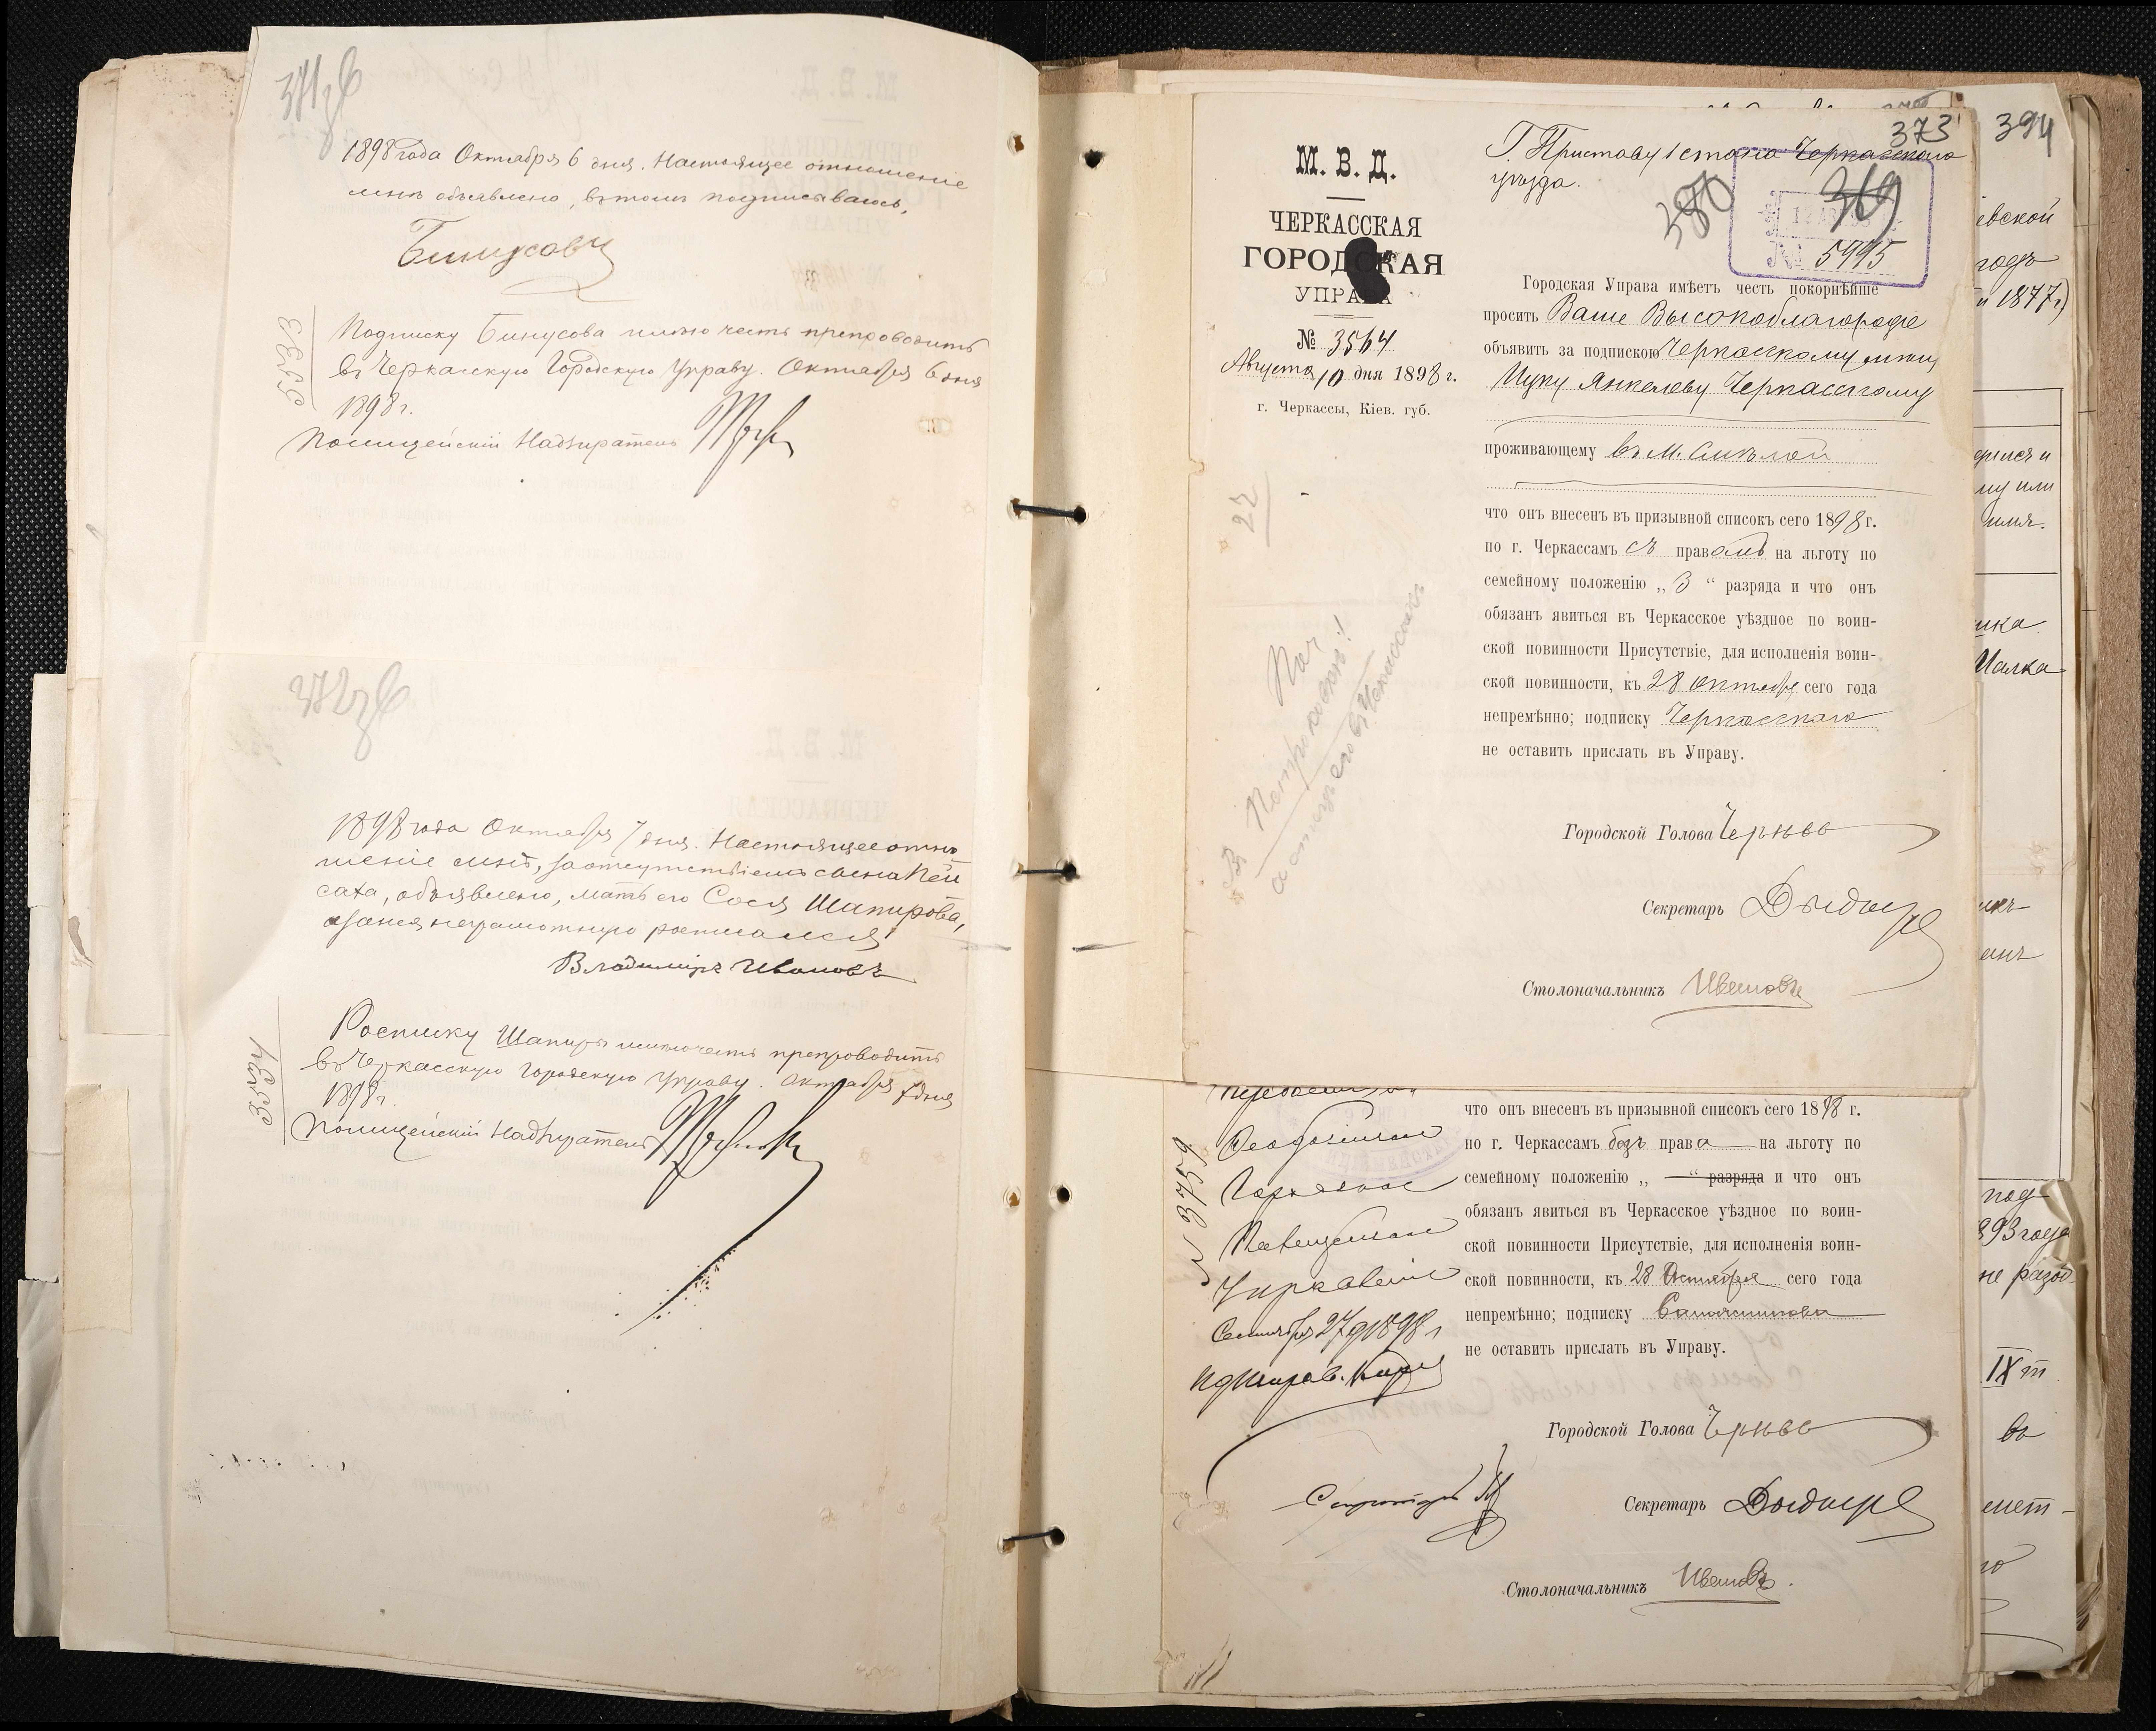 371 об
1898 года Октября 6 дня. Настоящее отношение
мнѣ объявлено, въ томъ подписываюсь,
Бинусовъ
Подписку Бинусова имѣю честь препроводить
въ Черкасскую Городскую Управу. Октября 6 дня
1898 г.
Полицейскій Надзиратель
5333
372 об
1898 года Октября 7 дня. Настоящее отно
шеніе мнѣ, за отсутствіемъ сына Пей
саха, объявлено, мать его Сося Шапирова,
а за нея неграмотную росписался
Владиміръ Ивановъ
Росписку Шапиры имѣю честь препроводить
въ Черкасскую Городскую Управу. Октября 7 дня
1898 г.
Полицейскій Надзиратель
373
394
Г. Приставу 1 стана Черкасскаго
уѣзда.
380
369
№ 5995
М. В. Д.
ЧЕРКАССКАЯ
ГОРОДСКАЯ
УПРАВА
№ 3564
Августа 10 дня 1898 г.
г. Черкассы, Кіев. губ.
22
Городская Управа имѣетъ честь покорнѣйше
просить Ваше Высокоблагородіе
объявить за подпискою Черкасскому мѣщ
Ицку Янкелеву Черкасскому
проживающему въ м. Смѣлой
что онъ внесенъ въ призывной списокъ сего 1898 г.
по г. Черкассамъ съ правомъ на льготу по
семейному положенію „3“ разряда и что онъ
обязанъ явиться въ Черкасское уѣздное по воин-
ской повинности Присутствіе, для исполненія воин-
ской повинности, къ 28 октября сего года
непремѣнно; подписку Черкасскаго
не оставить прислать въ Управу.
Городской Голова
Секретарь
Столоначальникъ Ивановъ
№ 3759
Феодосійское
Городское
Полицейское
Управленіе
Сентября 27 д 1898 г
Секретарь
что онъ внесенъ въ призывной списокъ сего 1898 г.
по г. Черкассамъ безъ права на льготу по
семейному положенію „ “ разряда и что онъ
обязанъ явиться въ Черкасское уѣздное по воин-
ской повинности Присутствіе, для исполненія воин-
ской повинности, къ 28 Октября сего года
непремѣнно; подписку Сапожникова
не оставить прислать въ Управу.
Городской Голова
Секретарь
Столоначальникъ Ивановъ.
евской
годъ
1877 г)
му или
имя.
Малка
под
893 года
не разоб
IX т
въ